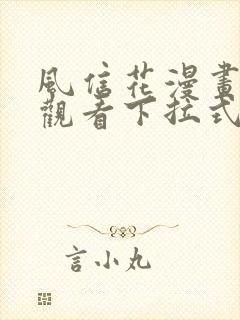 風信花漫畫
觀看下拉式
言小丸